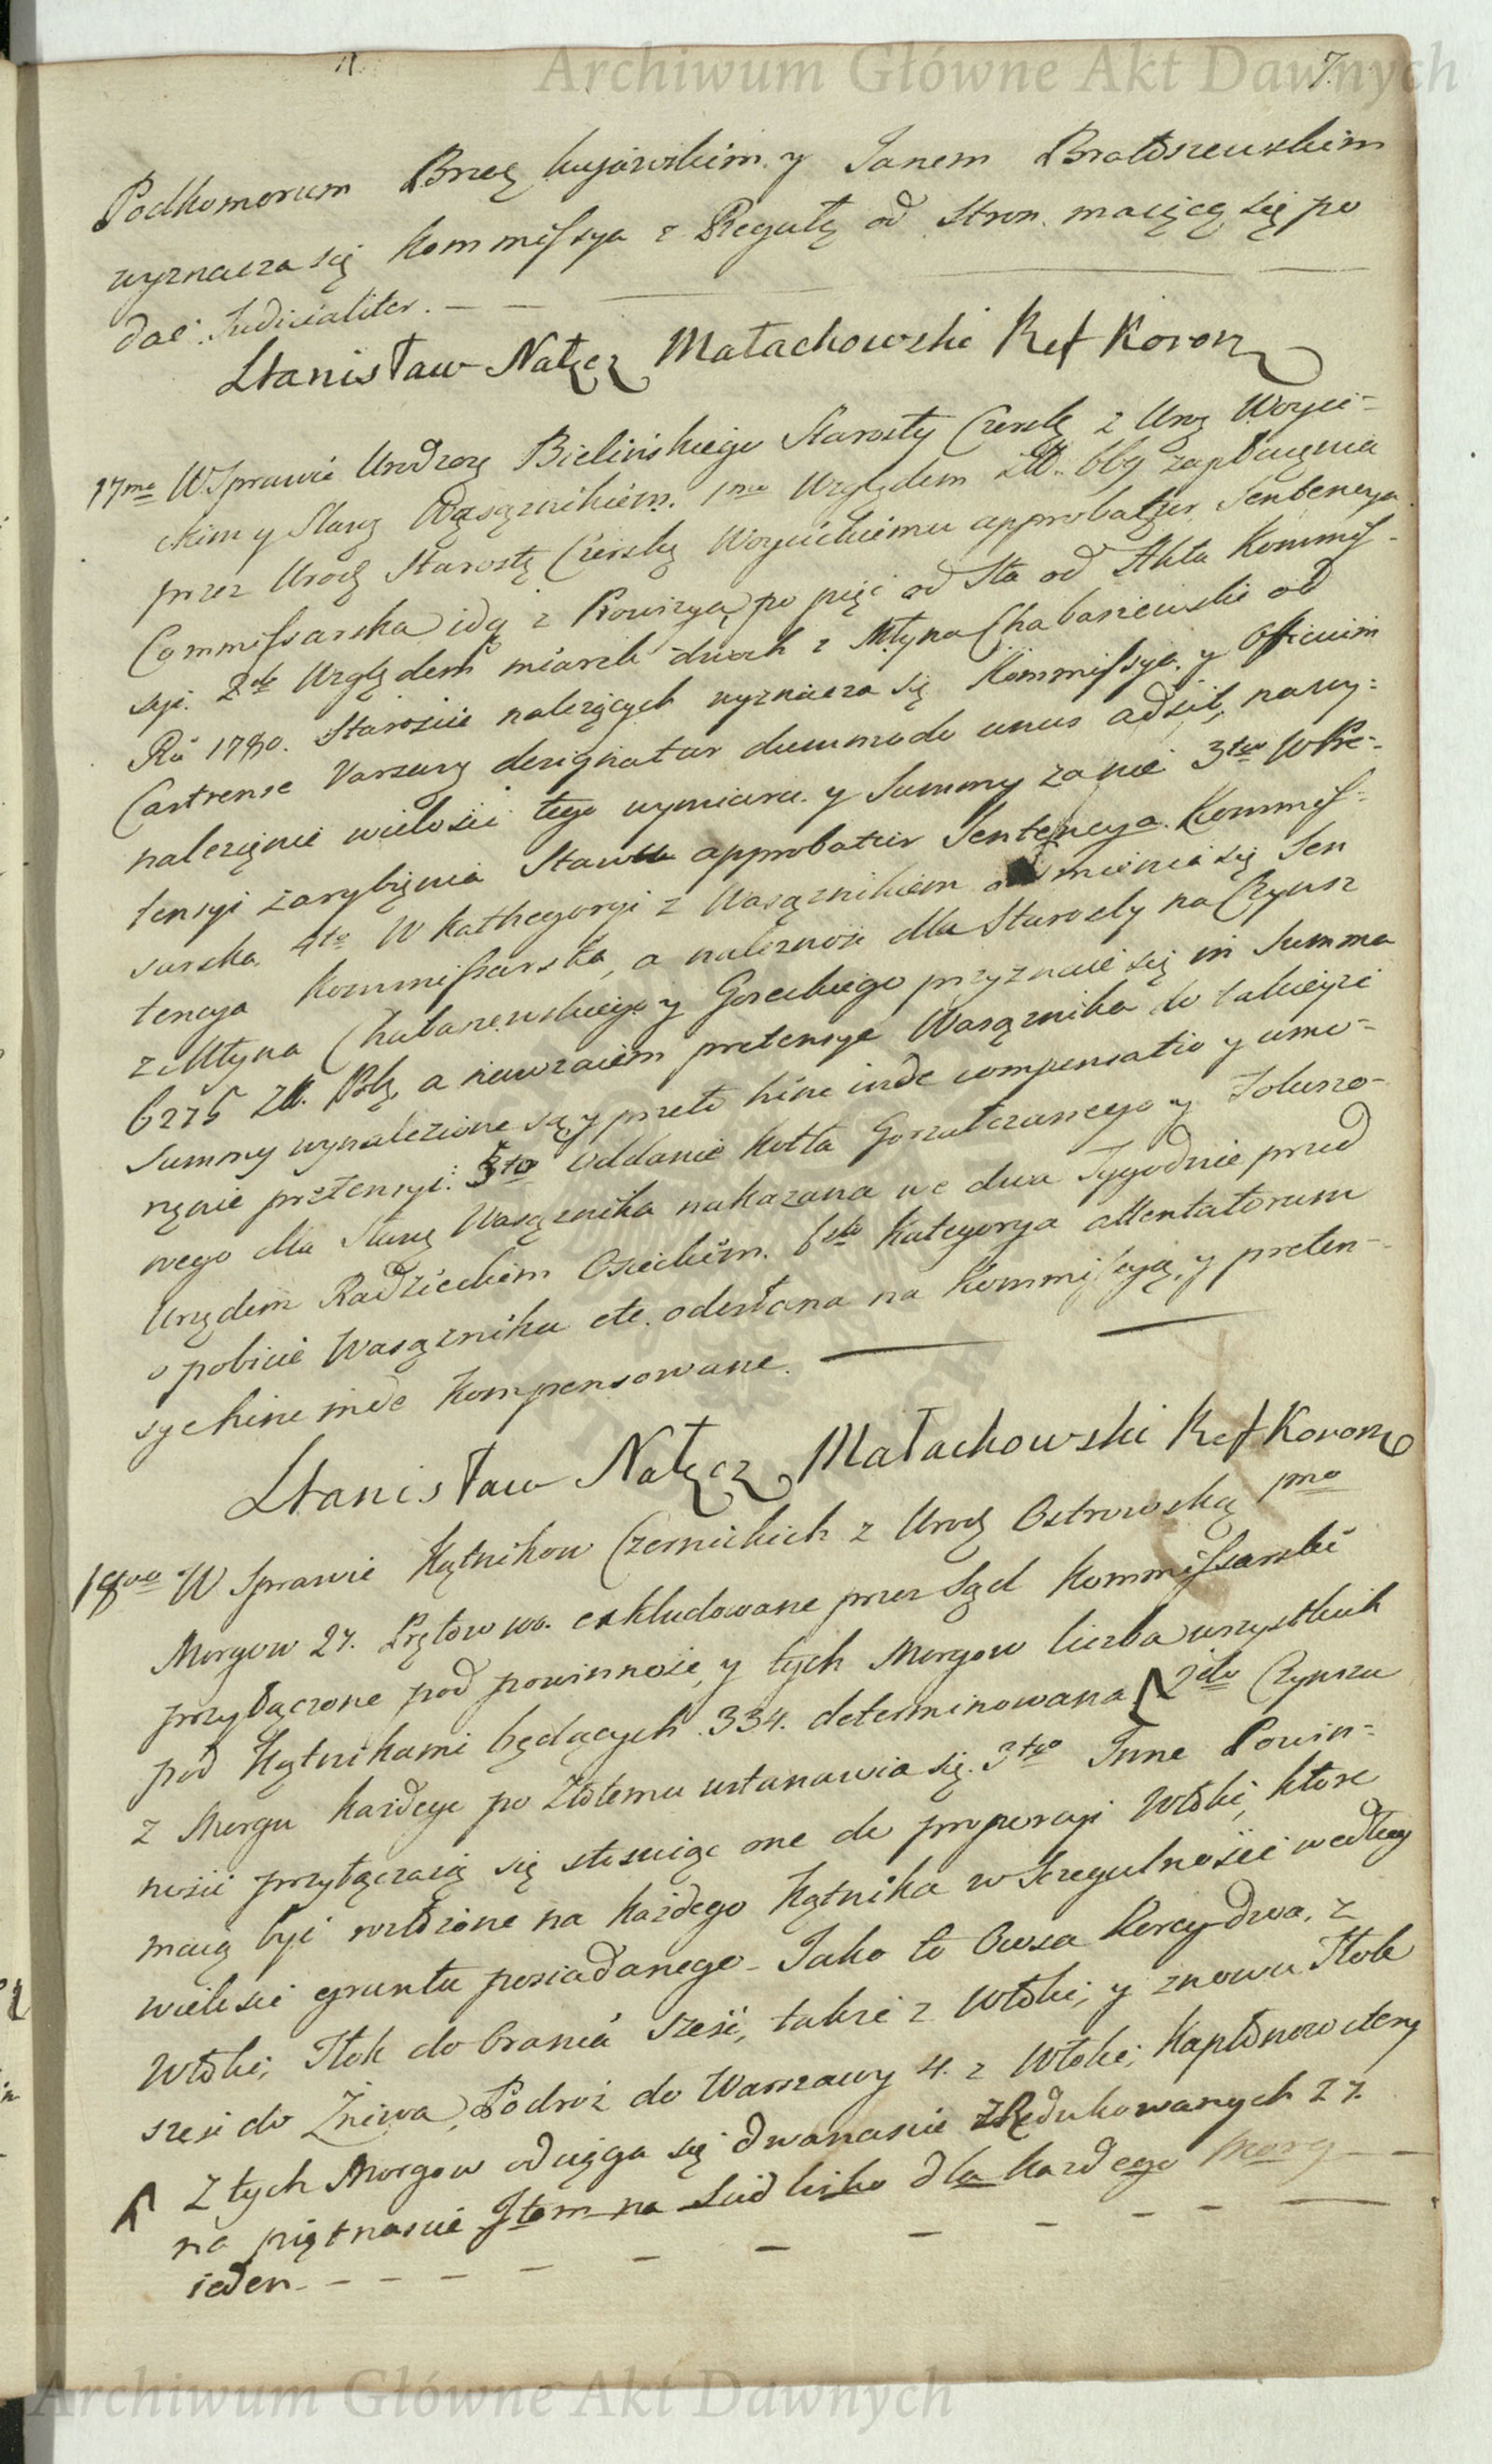 Archiwum Główne Akt Dawnych
7.
Podkomorzem Brzeg kujawskim. y Janem Bratoszewskim
wyznacza się Kommissya z Regułą od Stron. maiącą się po
dać. Judicialiter. — —
Stanisław Nałęcz Małachowski Ref Koron
17mo W Sprawie Urodzog Bielińskiego Starosty Czersk z Urog Woyci-
ckim y Sław Wąsąznikiem. 1mo Względem Zł. 669 zapłacenia
przez Urod Starostę Czerskg Woycickiemu approbatur Sentencya
Commissarska idq z Prowizyą po pięć od Sta od Akta Kommis-
syi. 2do Względem miarek dwoch z Młyna Chabasiewskie od
Ru 1780. Staroście należących wyznacza się Kommissya. y Officium
Castrense Varsavg designatur dummodo unus adsit, na wy-
nalezienie wielości tego wymiaru. y Summy za nie 3tio W Pre-
tensyi zarybienia Stawu approbatur Sentencya Kommis-
sarska. 4to W Kathegoryi z Wasąznikiem odmienia się Sen
tencya Kommissarska, a należność dla Starosty na Czynsz
z Młyna Chabasewskiego y Goreckiego przyznaie się in Summa
6275 Zł. Polg a nawzaiem pretensye Wasąznika do takieyże
Summy wynalezione są, y przeto hinc inde compensatio y umo-
rzenie pretensyi: 5to Oddanie Kotła Gorzałczanego y Foluszo-
wego dla Sławg Wasąznika nakazana we dwa Tygodnie przed
Urzędem Radzieckim Osieckim. 6to Kategorya Attentatorum
o pobicie Wasąznika etc. odesłana na Kommissyą, y preten-
sye hinc inde kompensowane. —
Stanisław Nałęcz Małachowski Ref Koron
18vo W Sprawie Kątnikow Czernickich z Urodg Ostrowską pmo
Morgow 27. Prętow wo. exkludowane przez Sąd Kommissarski
przyłączone pod powinność, y tych Morgow liczba wszystkich
pod Kątnikami będących. 334. determinowana 2do Czynszu
z Morgu każdego po Złotemu ustanawia się. 3tio Inne Powin-
ności przyłączaią się stosuiąc one do proporcyi Włoki, ktore
maią być rozłożone na każdego Kątnika w Szczegulności według
wielości gruntu posiadanego - Jako to Owsa Korcy dwa. z
Włoki, Tłok do Orania sześć, także z Włoki, y znowu Tłok
sześć do Żniwa, Podroż do Warszawy 4. z Włoki, Kapłonow cztery
Z tych Morgow odciąga się dwanaście zRedukowanych 27.
na piętnaście Item na Siedlisko dla każdego Morg —
ieden — — — — — — — — —
Archiwum Główne Akt Dawnych